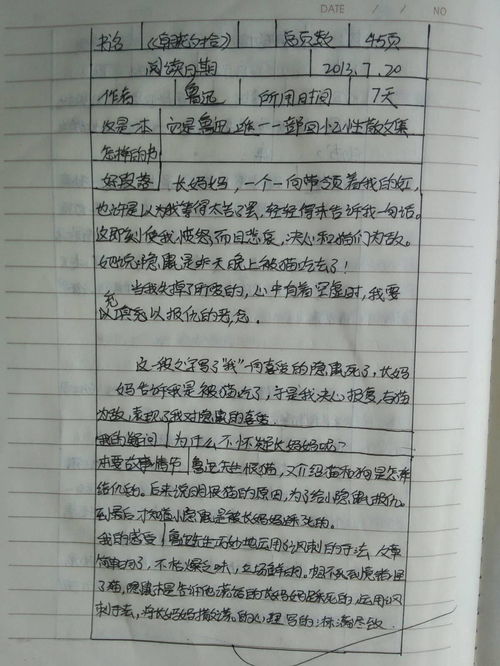 DATE / / NO
书名 《朝花夕拾》 总页数 45页
阅读日期 2013.7.20
作者 鲁迅 所用时间 7天
这是一本 它是鲁迅唯一一部回忆性散文集
怎样的书
好段落 长妈妈,一个一向带领着我的
也许是以为我等得太苦了罢,轻轻得来告诉我一句话。
这即刻使我愤怒而且悲哀,决心和猫们为敌。
她说:隐鼠是昨天晚上被猫吃去了!
当我失掉了所爱的,心中有着空虚时,我要
充
以填充以报仇的恶念.
这一段文字写了“我”一向喜爱的隐鼠死了,长妈
妈告诉我是被猫吃了,于是我决心报复,与猫
为敌,表现了我对隐鼠的喜爱.
我的疑问 为什么不怀疑长妈妈呢?
本要故事情节 鲁迅先生恨猫,又介绍猫和狗是怎样
结仇的。后来说明恨猫的原因,为了给小隐鼠报仇。
到最后才知道小隐鼠是被长妈妈踩死的.
我的感受 鲁迅先生巧妙地运用了讽刺的手法,文章
了猫,隐鼠 告诉他 的长妈妈踩死的,运用讽
刺手法,将长妈妈 的心理写的淋漓尽致.